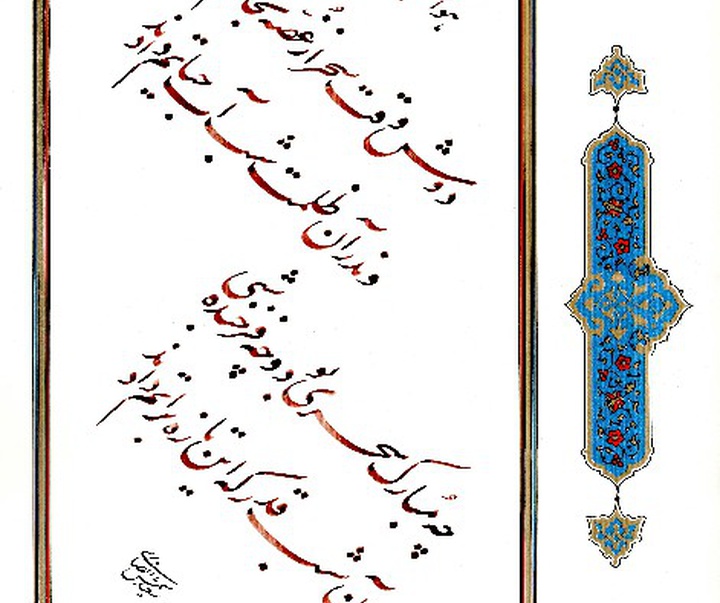 دوش وقت سحر از غصه
وندر آن ظلمت شب آب حیاتم دادند
چه مبارک سحری بود و چه فرخنده شبی
آن شب قدر که این تازه براتم دادند